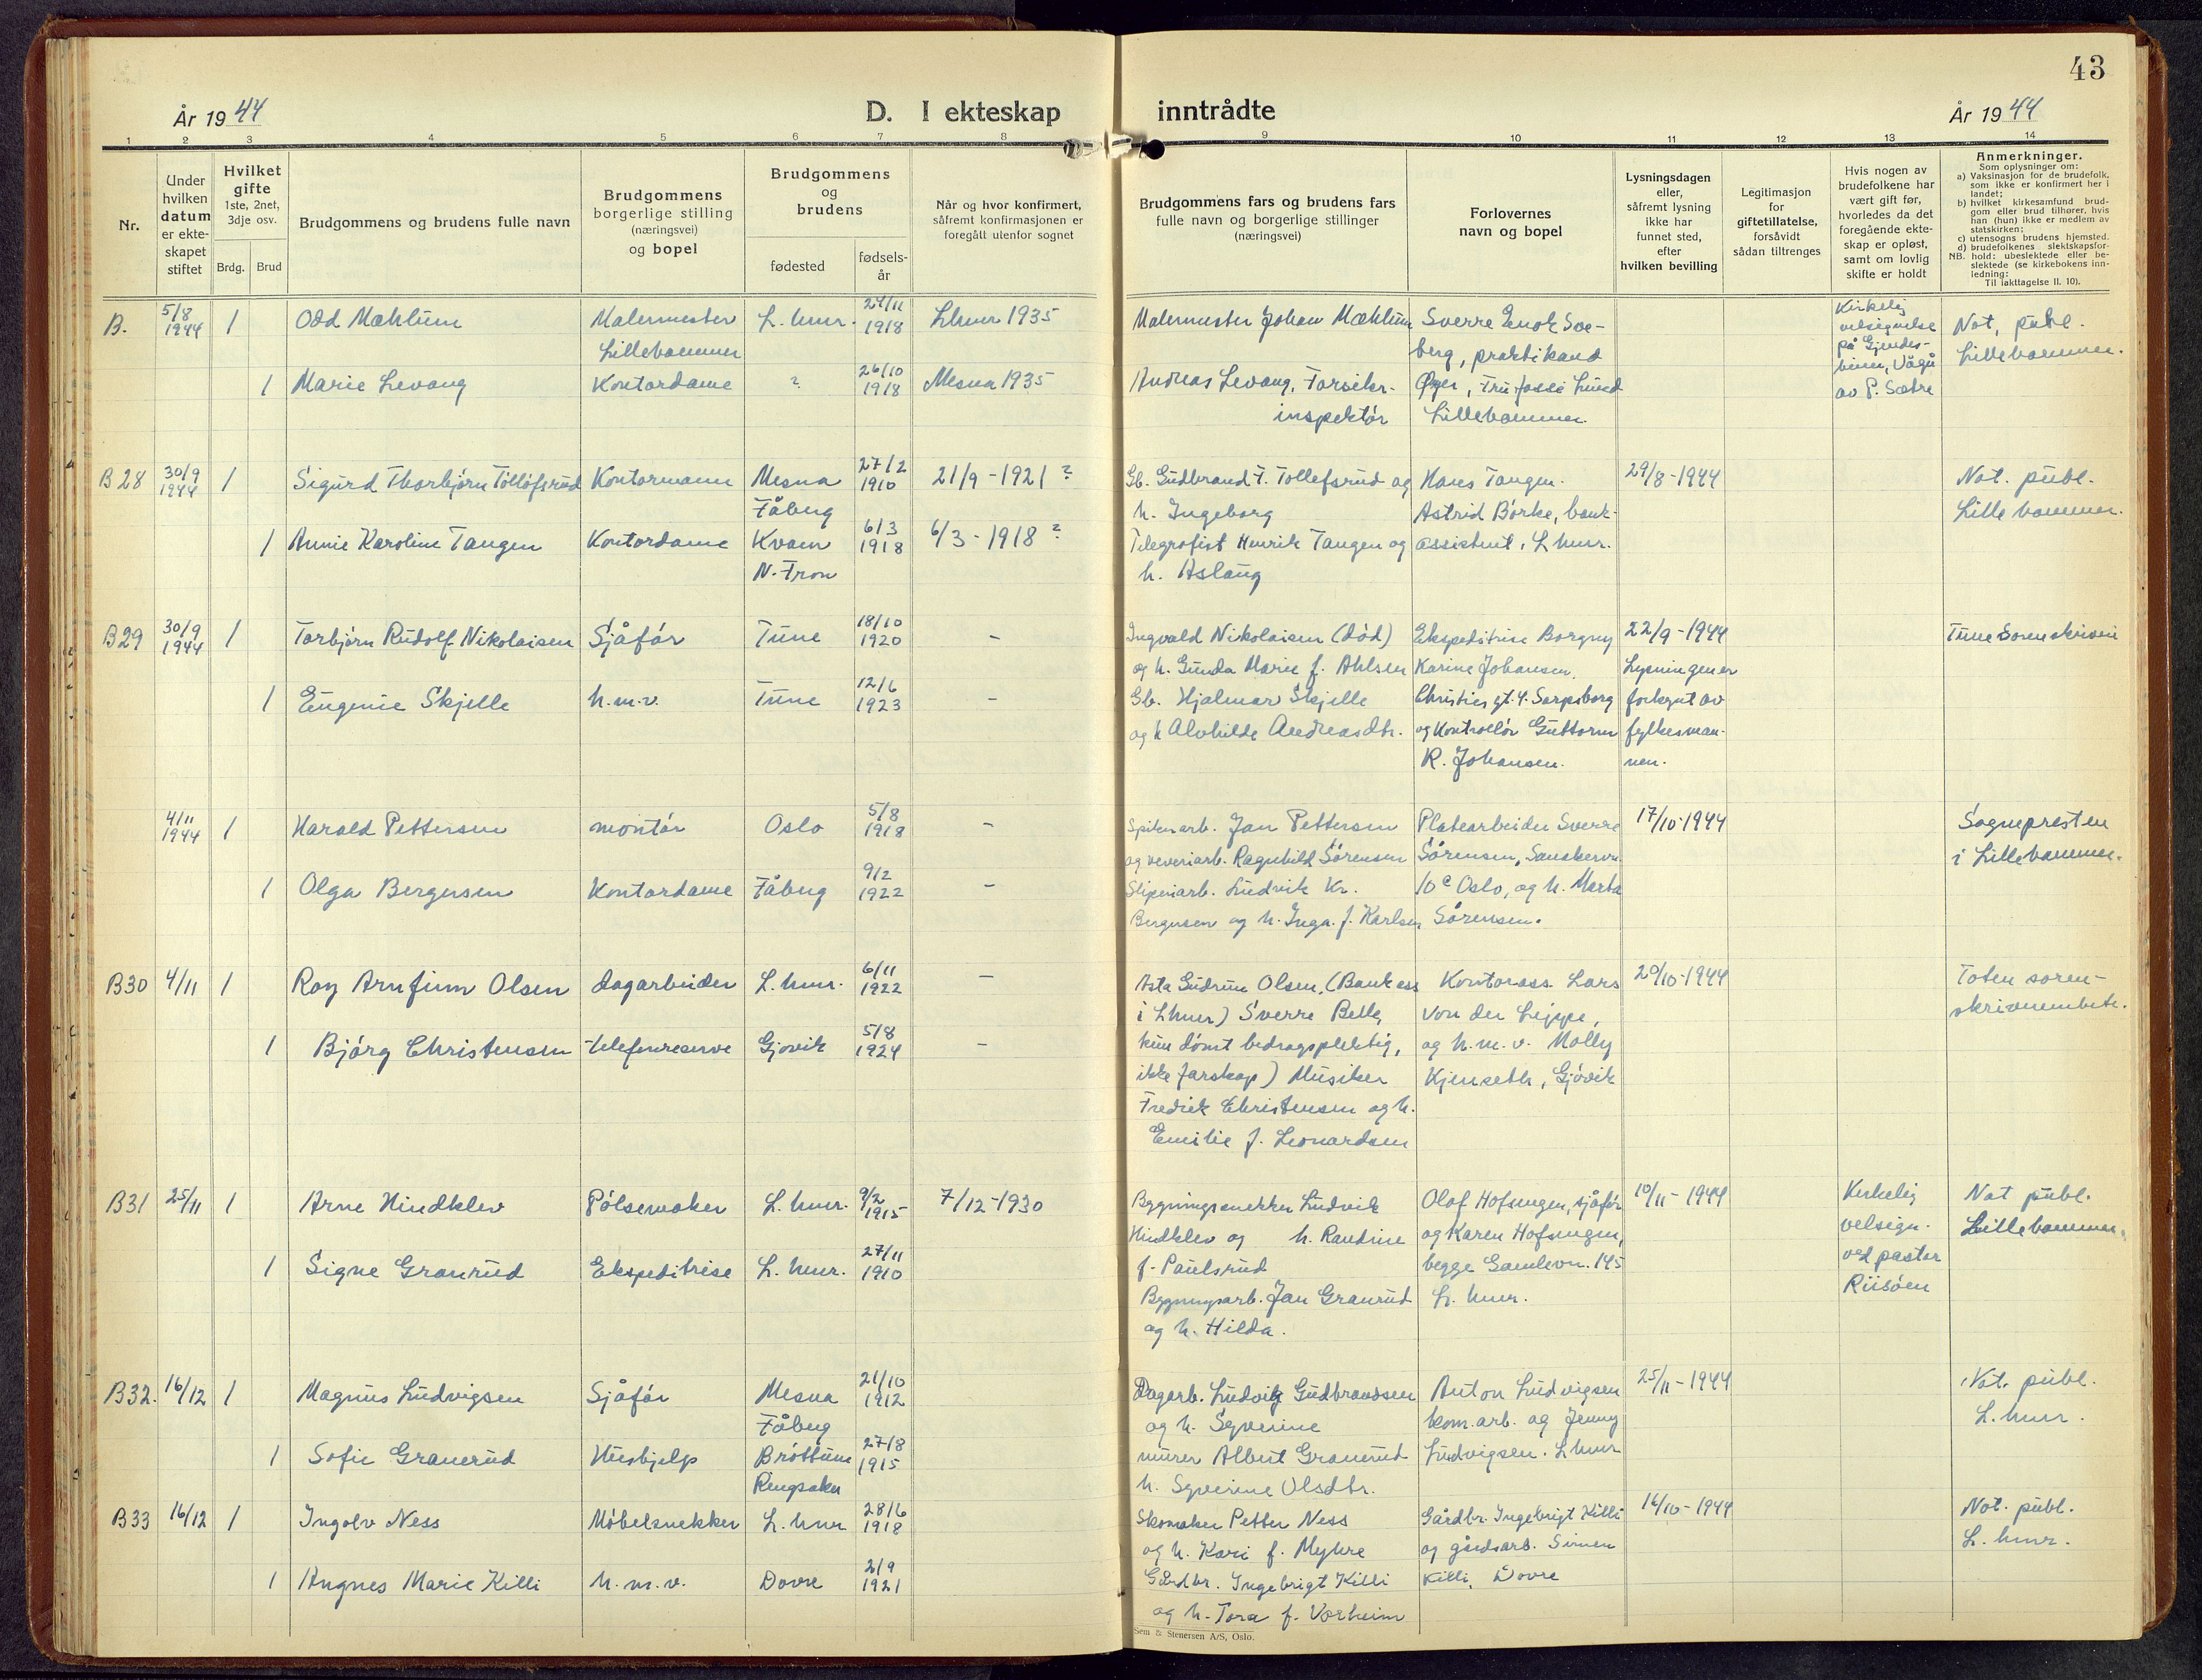 43
År 1944
D. I ekteskap
inntrådte
År 1944
1 2 3 4 5 6 7 8 9 10 11 12 13 14
Nr.
Under
hvilken
datum
er ekte-
skapet
stiftet
Hvilket
gifte
1ste, 2net,
3dje osv.
Brdg. Brud
Brudgommens og brudens fulle navn
Brudgommens
borgerlige stilling
(næringsvei)
og bopel
Brudgommens
og
brudens
fødested
fødsels-
år
Når og hvor konfirmert,
såfremt konfirmasjonen er
foregått utenfor sognet
Brudgommens fars og brudens fars
fulle navn og borgerlige stillinger
(næringsvei)
Forlovernes
navn og bopel
Lysningsdagen
eller,
såfremt lysning
ikke har
funnet sted,
efter
hvilken bevilling
Legitimasjon
for
giftetillatelse,
forsåvidt
sådan tiltrenges
Hvis nogen av
brudefolkene har
vært gift før,
hvorledes da det
foregående ekte-
skap er opløst,
samt om lovlig
skifte er holdt
Anmerkninger.
Som oplysninger om:
a) Vaksinasjon for de brudefolk,
som ikke er konfirmert her i
landet;
b) hvilket kirkesamfund brud-
gom eller brud tilhører, hvis
han (hun) ikke er medlem av
statskirken;
c) utensogns brudens hjemsted.
d) brudefolkenes slektskapsfor-
NB. hold: ubeslektede eller be-
slektede (se kirkebokens inn-
ledning:
Til iakttagelse II. 10).
B.
5/8
1944
1
Odd Mæhlum
Malermester
Lillehammer
L. hmr.
24/11
1918
Lhmr 1935
Malermester Johan Mæhlum
Sverre Enok Soe-
berg, praktikand
Kirkelig
velsignelse
på Gjendes-
heim, Vågå
av P. Sætre
Not. publ.
Lillehammer.
1
Marie Levang
Kontordame
?
26/10
1918
Mesna 1935
Andreas Levang, Forsikr.
inspektør
Øyer, Fru Jossi Lund
Lillehammer.
B28
30/9
1944
1
Sigurd Thorbjørn Tollofsrud
Kontormann
Mesna
Fåberg
27/2
1910
21/9 - 1921 ?
Gb. Gudbrand T. Tollefsrud og
h. Ingeborg
Hans Tangen.
Astrid Børke, bank-
29/8-1944
Not. publ.
Lillehammer.
1
Annie Karoline Tangen
Kontordame
Kvam
N. Fron
6/3
1918
6/3 - 1918 ?
Telegrafist Henrik Tangen og
h. Aslaug
assistent, L hmr.
B29
30/9
1944
1
Torbjørn Rudolf Nikolaisen
Sjåfør
Tune
18/10
1920
-
Ingvald Nikolaisen (død)
og h. Gunda Marie f. Ahlsen
Ekspeditrise Borgny
Karine Johansen,
22/9-1944
Lysningen er
Tune Sorenskriveri
1
Eugenie Skjelle
h.m.v.
Tune
12/6
1923
-
Gb. Hjalmar Skjelle
og h Alvhilde Andreasdtr.
Christies gt. 4. Sarpsborg
og Kontrollør Guttorm
R. Johansen.
forkynt av
fylkesman-
nen.
4/11
1944
1
Harald Pettersen
montør
Oslo
5/8
1918
-
Jan Pettersen
og veveriarb. Ragnhild Sørensen
Platearbeider Sverre
Sørensen,
17/10-1944
Sognepresten
i Lillehammer.
1
Olga Bergersen
Kontordame
Fåberg
9/2
1922
-
Sliperiarb. Ludvik Kr.
Bergersen og h. Inga. f. Karlsen
10 c Oslo, og h. Marta
Sørensen.
B30
4/11
1
Roy Arnfinn Olsen
dagarbeider
L. hmr.
6/11
1922
-
Asta Gudrun Olsen, (Bank ass
i Lhmr) Sverre
kun dømt bidragspliktig,
ikke farskap) Musiker
Fredrik Christensen og h.
Emilie f. Leonardsen
Kontorass. Lars
von der Lippe,
og h.m.v. Molly
Kjenseth, Gjøvik
20/10-1944
Toten soren-
skriverembete.
1
Bjørg Christensen
telefonreserve
Gjøvik
5/8
1924
-
B31
25/11
1
Arne Hindklev
Pølsemaker
L. hmr.
9/2
1915
7/12-1930
Bygningssnekker Ludvik
Hindklev og h. Randine
f. Paulsrud
Olaf Hofsengen, sjåfør
og Karen Hofsengen,
begge Gamlevn. 145
L. hmr.
10/11-1944
Kirkelig
velsign.
ved pastor
Riisöen
Not publ.
Lillehammer.
1
Signe Granrud
Ekspeditrise
L. hmr.
27/11
1910
Bygningsarb. Jan Granrud
og h. Hilda.
B32.
16/12
1
Magnus Ludvigsen
Sjåfør
Mesna
Fåberg
21/10
1912
Dagarb. Ludvig Gudbrandsen
og h. Syverine
Anton Ludvigsen
kom.arb. og Jenny
Ludvigsen. Lhmr
25/11-1944
Not. publ.
L. hmr.
1
Sofie Granerud
Husbjelp
Brøttum
Ringsaker
27/8
1915
murer Albert Granerud
h. Syverine Olsdtr.
B33
16/12
1
Ingolv Ness
Møbelsnekker
L. hmr
28/6
1918
Skomaker Petter Ness
og h. Kari f. Myhre
Gårdbr. Ingebrigt Killi
og gårdsarb. Simen
Killi, Dovre
Not. publ.
L. hmr.
1
Angnes Marie Killi
h.m.v.
Dovre
2/9
1921
Gårdbr. Ingebrigt Killi
og h. Tora f. Vorheim
Sem & Stenersen A/S, Oslo.